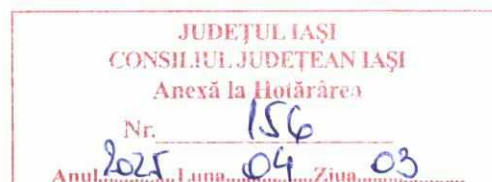 JUDEȚUL IAȘI
CONSILIUL JUDEȚEAN IAȘI
Anexă la Hotărârea
Nr. 156
Anul 2025 Luna 04 Ziua 03